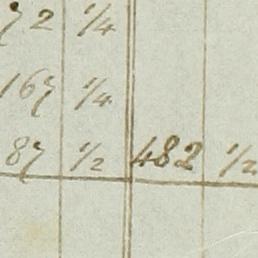 72 1/4
167 1/4
87 1/2 482 1/2